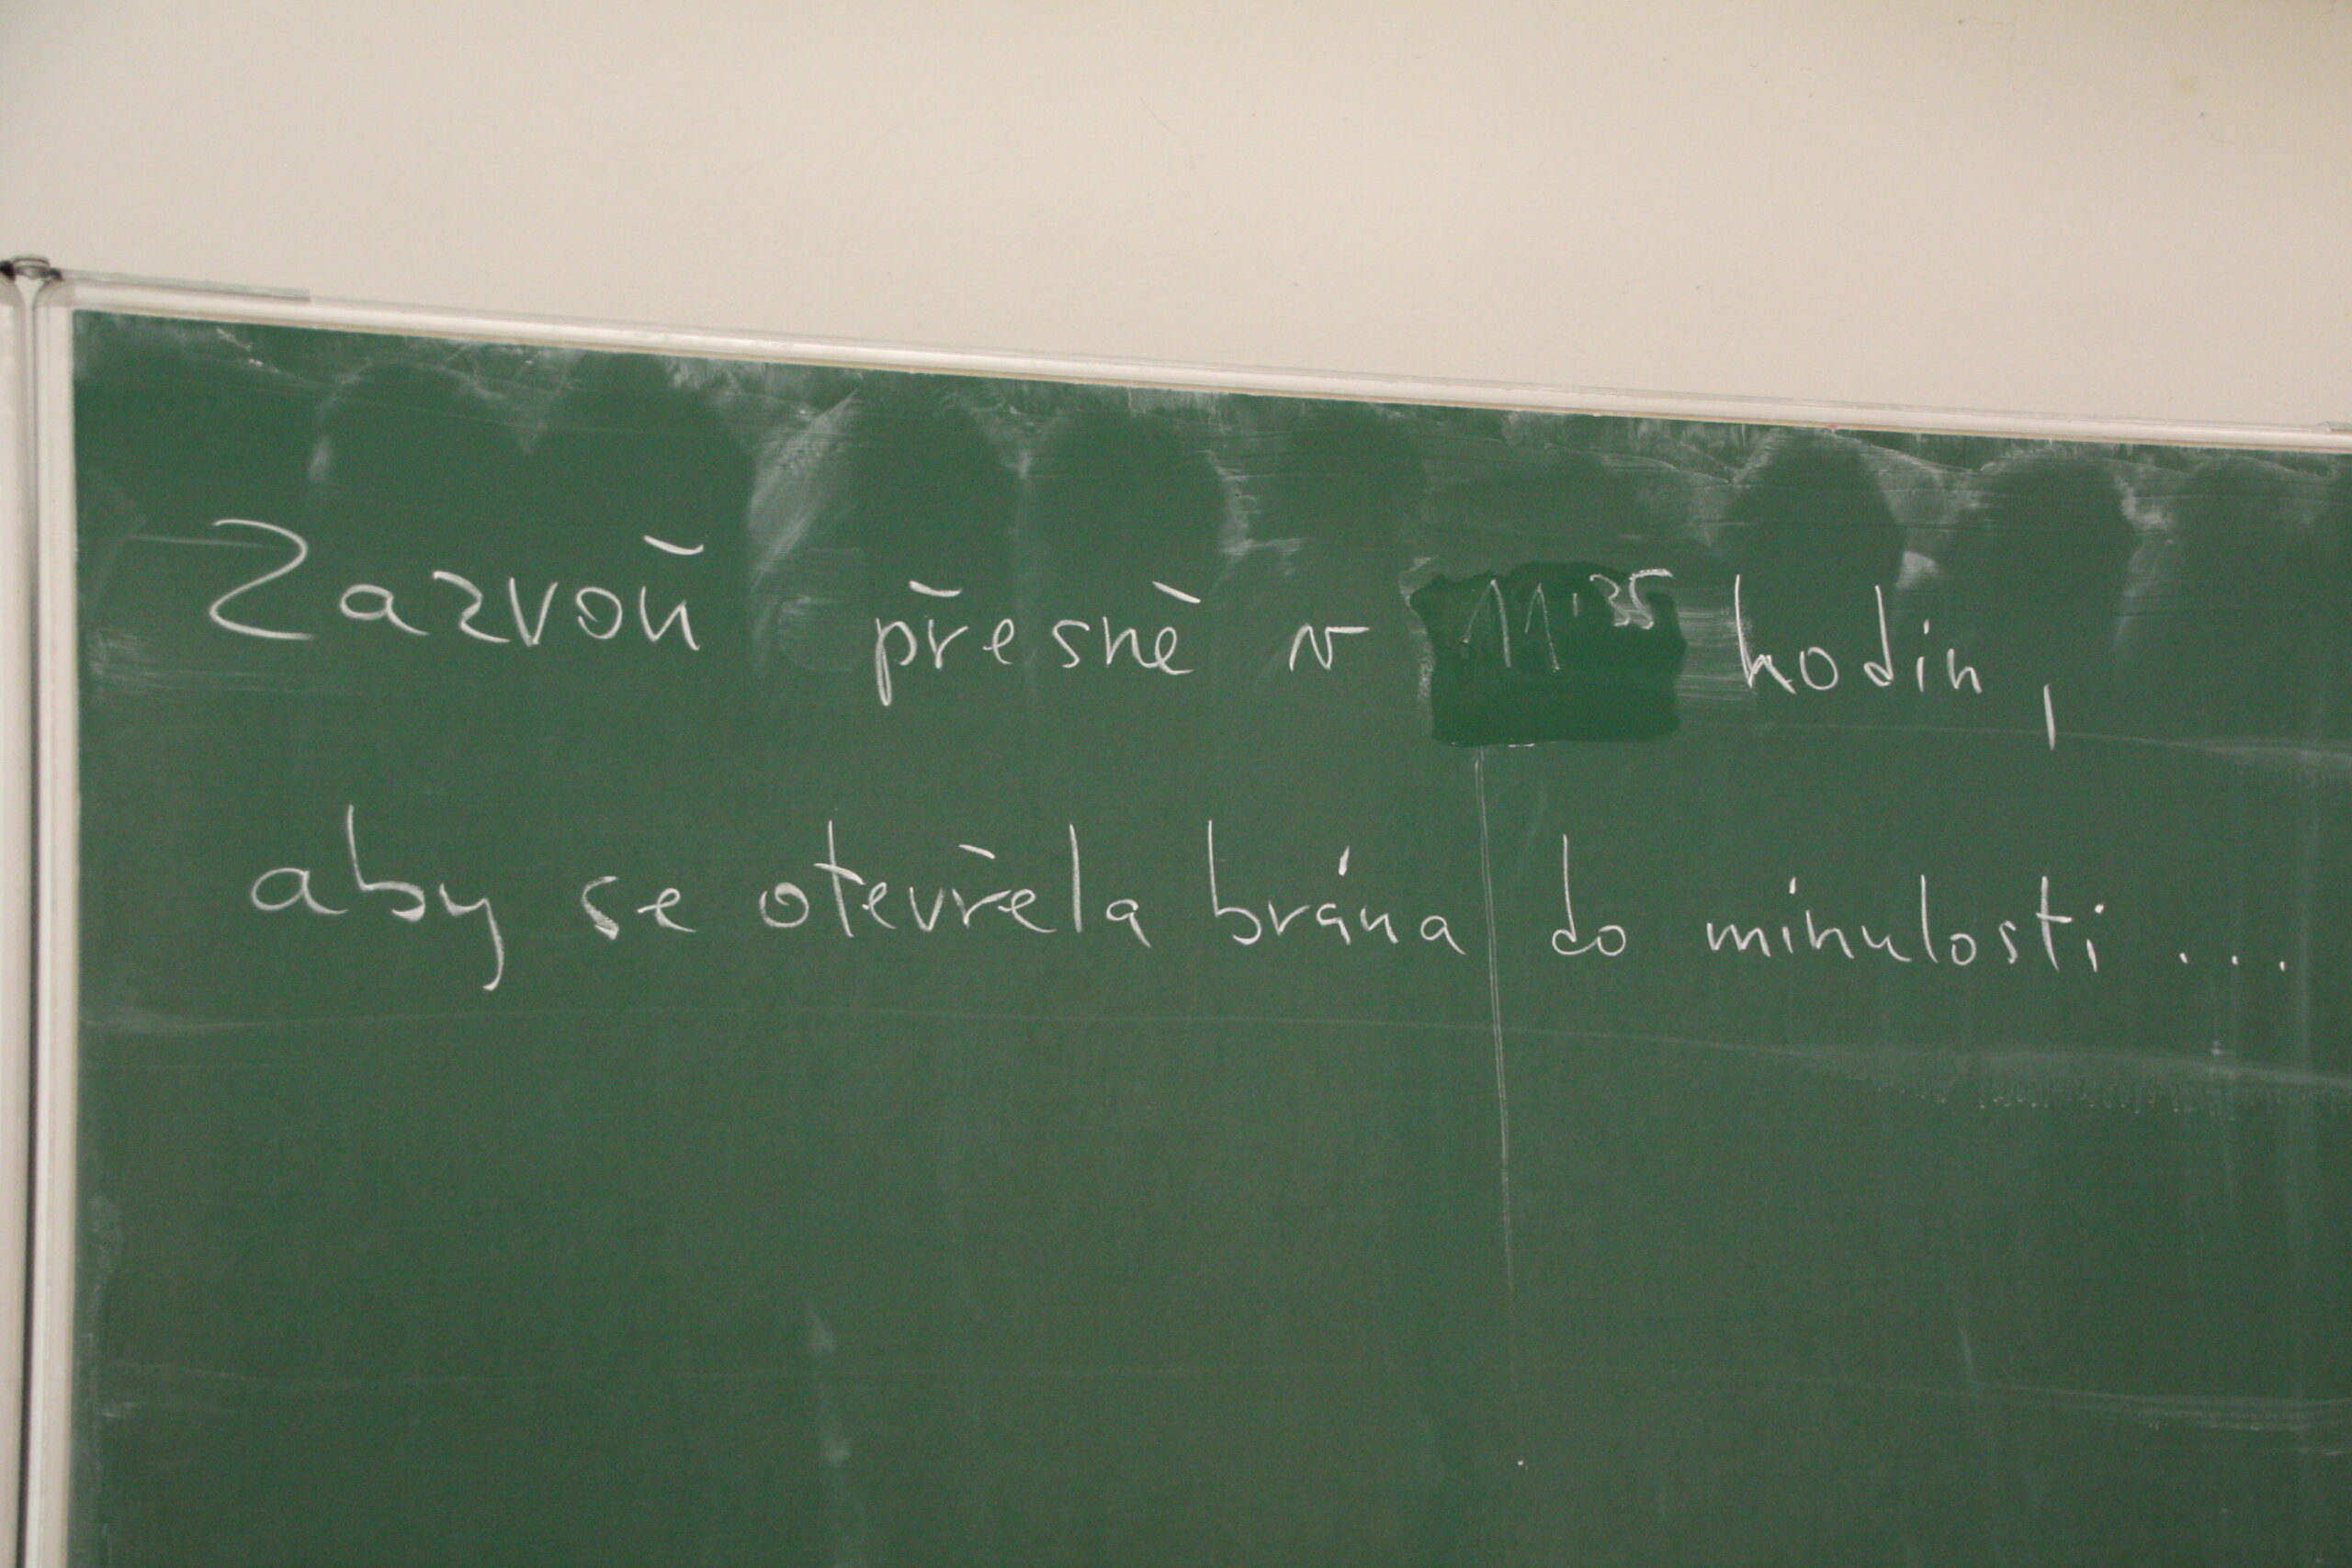 Zazvoň přesně v 11.35 hodin,
aby se otevřela brána do minulosti...